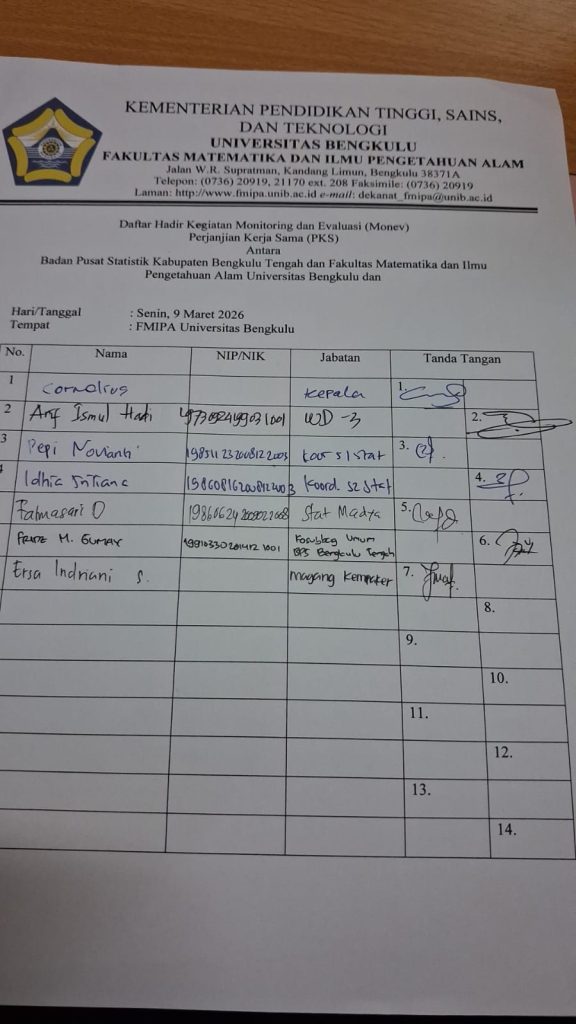 KEMENTERIAN PENDIDIKAN TINGGI, SAINS,
DAN TEKNOLOGI
UNIVERSITAS BENGKULU
FAKULTAS MATEMATIKA DAN ILMU PENGETAHUAN ALAM
Jalan W.R. Supratman, Kandang Limun, Bengkulu 38371A
Telepon: (0736) 20919, 21170 ext. 208 Faksimile: (0736) 20919
Laman: http://www.fmipa.unib.ac.id e-mail: dekanat_fmipa@unib.ac.id
Daftar Hadir Kegiatan Monitoring dan Evaluasi (Monev)
Perjanjian Kerja Sama (PKS)
Antara
Badan Pusat Statistik Kabupaten Bengkulu Tengah dan Fakultas Matematika dan Ilmu
Pengetahuan Alam Universitas Bengkulu dan
Hari/Tanggal : Senin, 9 Maret 2026
Tempat : FMIPA Universitas Bengkulu
No. Nama NIP/NIK Jabatan Tanda Tangan
1 Cornelius Kepala 1.
2 Arif Ismul Hadi WD-3 2.
3 Pepi Novianti 198511232008122003 S1 Stat 3.
Idhia Koord. S2 Stat 4.
Fatmasari D Stat Madya 5.
M. Gumay 199103302014121001 Kasubbag Umum 6.
BPS Bengkulu Tengah
Ersa Indriani S. magang Kemnaker 7.
8.
9.
10.
11.
12.
13.
14.